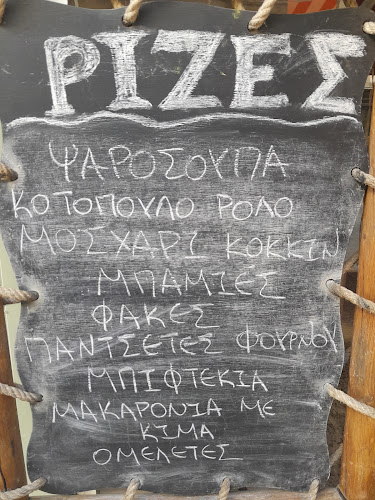 ΡΙΖΕΣ
ΨΑΡΟΣΟΥΠΑ
ΚΟΤΟΠΟΥΛΟ ΡΟΛΟ
ΜΟΣΧΑΡΙ ΚΟΚΚΙΝ
ΜΠΑΜΙΕΣ
ΦΑΚΕΣ
ΠΑΝΤΣΕΤΕΣ ΦΟΥΡΝΟΥ
ΜΠΙΦΤΕΚΙΑ
ΜΑΚΑΡΟΝΙΑ ΜΕ
ΚΙΜΑ
ΟΜΕΛΕΤΕΣ